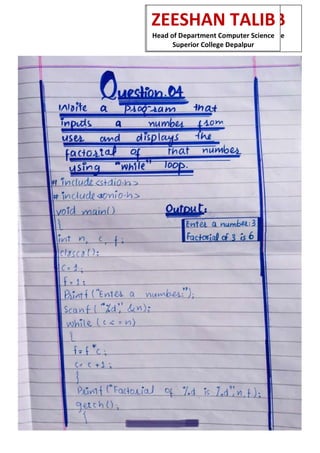 ZEESHAN TALIB
Head of Department Computer Science
Superior College Depalpur
Question.04
Write a program that
inputs a number from
user and displays the
factorial of that number
using "while" loop.
# include <stdio.h>
# include <conio.h>
void main()
{
int n, c, f;
clrscr();
c=1;
f=1;
Printf ("Enter a number:");
Scanf ( "%d", &n);
while (c <= n)
{
f= f *c;
c= c+1;
}
Printf ("Factorial of %d is %d", n, f);
getch();
}
Output:
Enter a number: 3
Factorial of 3 is 6